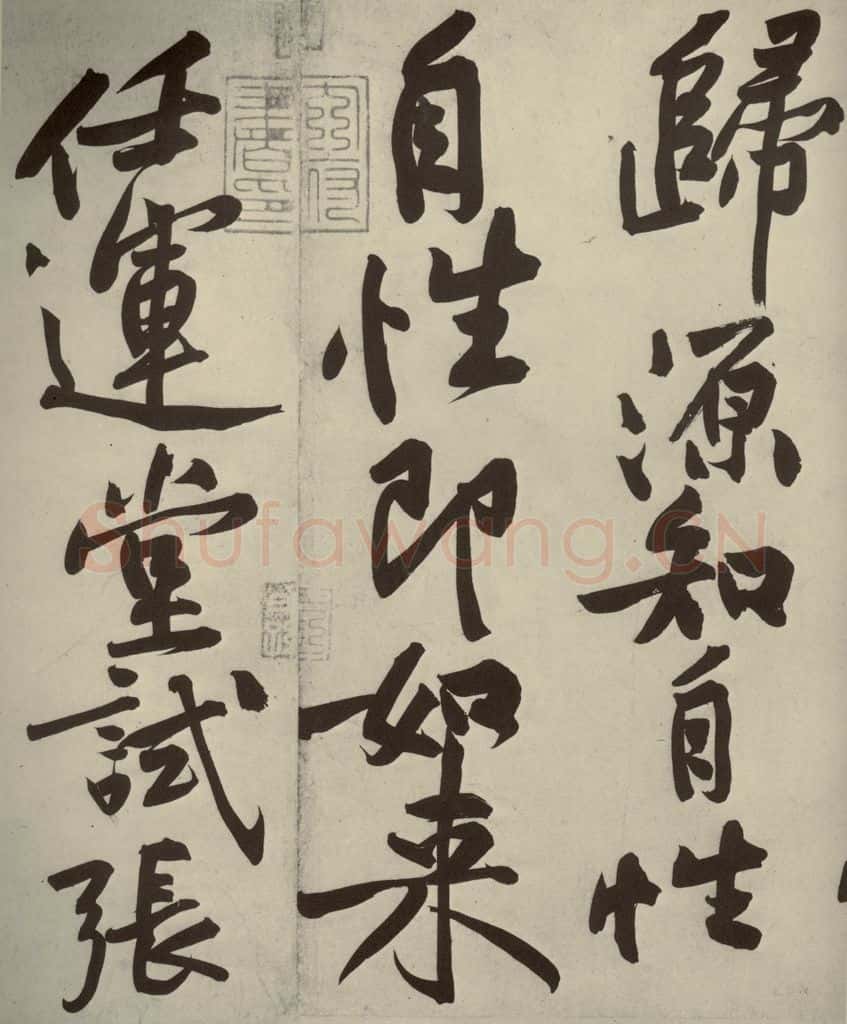 歸源知自性
自性即如来
任運堂試張
Shufawang.CN